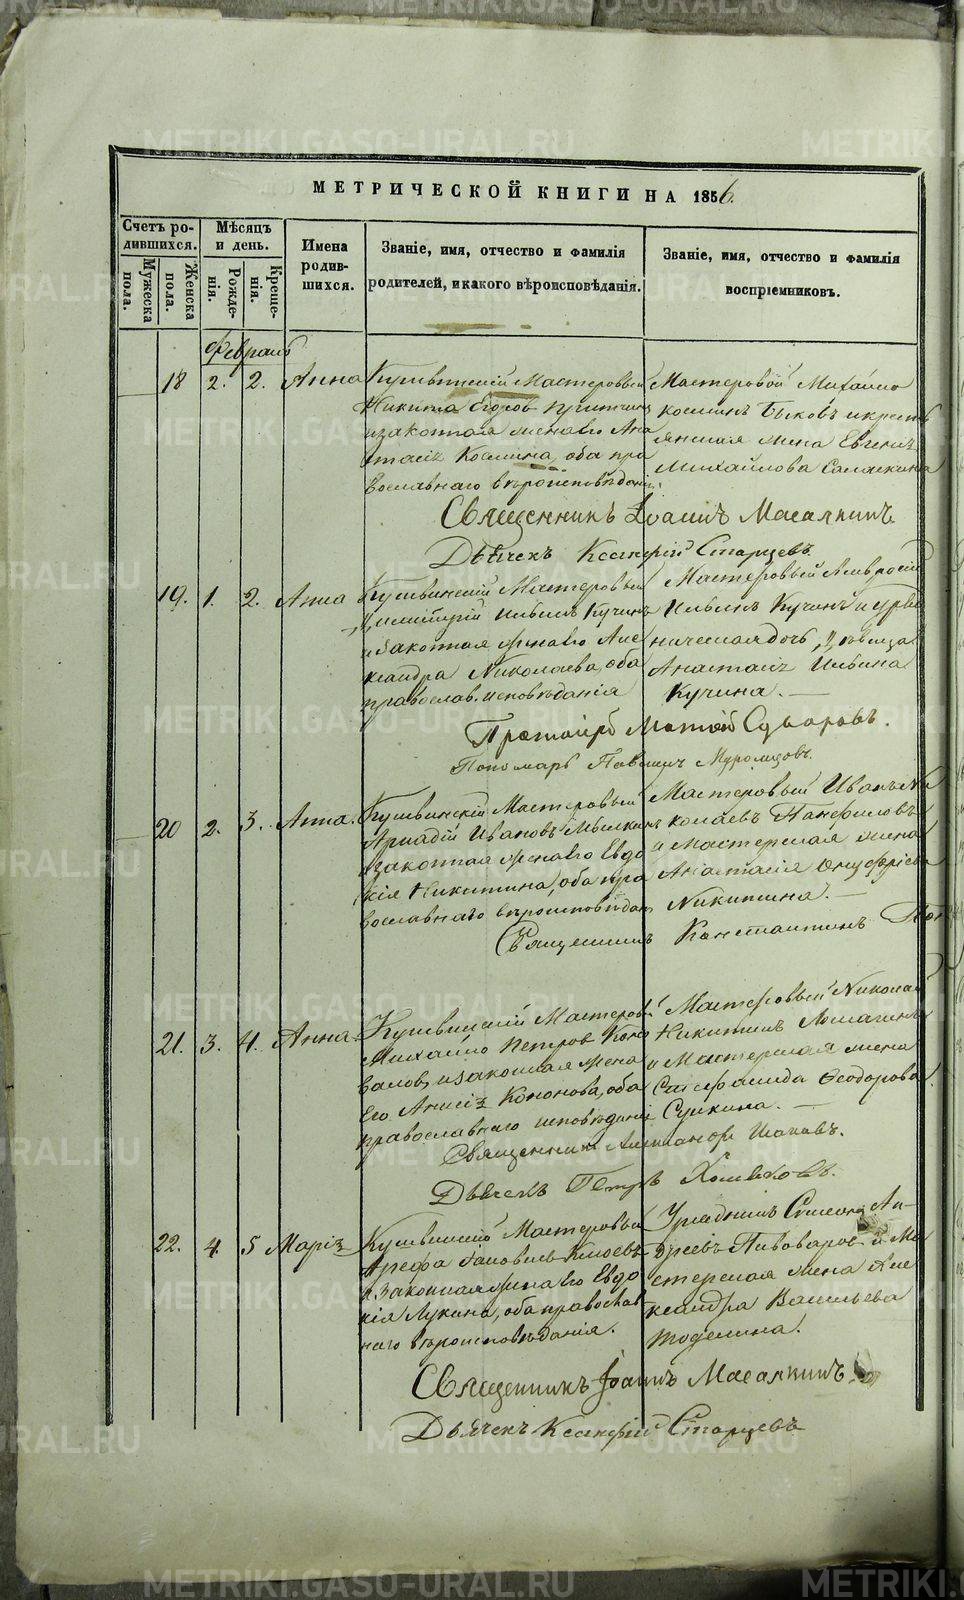 МЕТРИЧЕСКОЙ КНИГИ НА 1856.
Счетъ ро-
дившихся.
Мужеска
пола.
Женска
пола.
Мѣсяцъ
и день.
Рожде-
нія.
Креще-
нія.
Имена
родив-
шихся.
Званіе, имя, отчество и фамилія
родителей, и какого вѣроисповѣданія.
Званіе, имя, отчество и фамилія
воспріемниковъ.
Февраль
18 2. 2. Анна
Кушвинскій Мастеровый
Никита Егоров
и законная жена его Ана
стасія Козмина, оба пра
вославнаго вѣроисповѣданія.
Мастеровой Михайло
Козминъ Быковъ и кресть
янская жена Евгенія
Михайлова
Священникъ Іоаннъ Масалкинъ
Дьячекъ Ксенфій Старцевъ.
19. 1. 2. Анна
Кушвинскій Мастеровый
Димитрій Ильинъ Кучинъ
и законная жена его Але
ксандра Николаева, оба
православ. исповѣданія
Мастеровый Амвросій
Ильинъ Кучинъ и уряд
ническая дочь, дѣвица
Анастасія Ильина
Кучина. —
Протоіерей Матѳій Суворовъ.
Пономарь Павелъ Муромцовъ.
20 2. 3. Анна.
Кушвинскій Мастеровый
Аркадій Ивановъ Мылкинъ
и законная жена его Евдо
кія Никитина, оба пра
вославнаго вѣроисповѣдан
Мастеровый Иванъ Ни
колаевъ Панфиловъ
и Мастерская жена
Анастасія Онуфріева
Никитина. —
Священникъ Константинъ Поп
21. 3. 4. Анна
Кушвинскій Мастеровый
Михайло Петров Коно
валов, и законная жена
его Анисія Кононова, оба
православнаго исповѣданія
Мастеровый Николай
Никитинъ
и Мастерская жена
Степанида Ѳеодорова
Сушкина. —
Священникъ Александръ Шаховъ.
Дьячекъ Петръ Хомяковъ.
22. 4. 5 Марія
Кушвинскій Мастеровый
Арефа Клюевъ
и законная жена его Евдо
кія Лукина, оба православ-
наго вѣроисповѣданія.
Урядникъ Симеонъ Ан-
дреевъ Пивоваров и Ма
стерская жена Але
ксандра Васильева
Тоделина.
Священникъ Іоаннъ Масалкинъ
Дьячекъ Ксенфій Старцевъ
METRIKI.GASO-URAL.RU